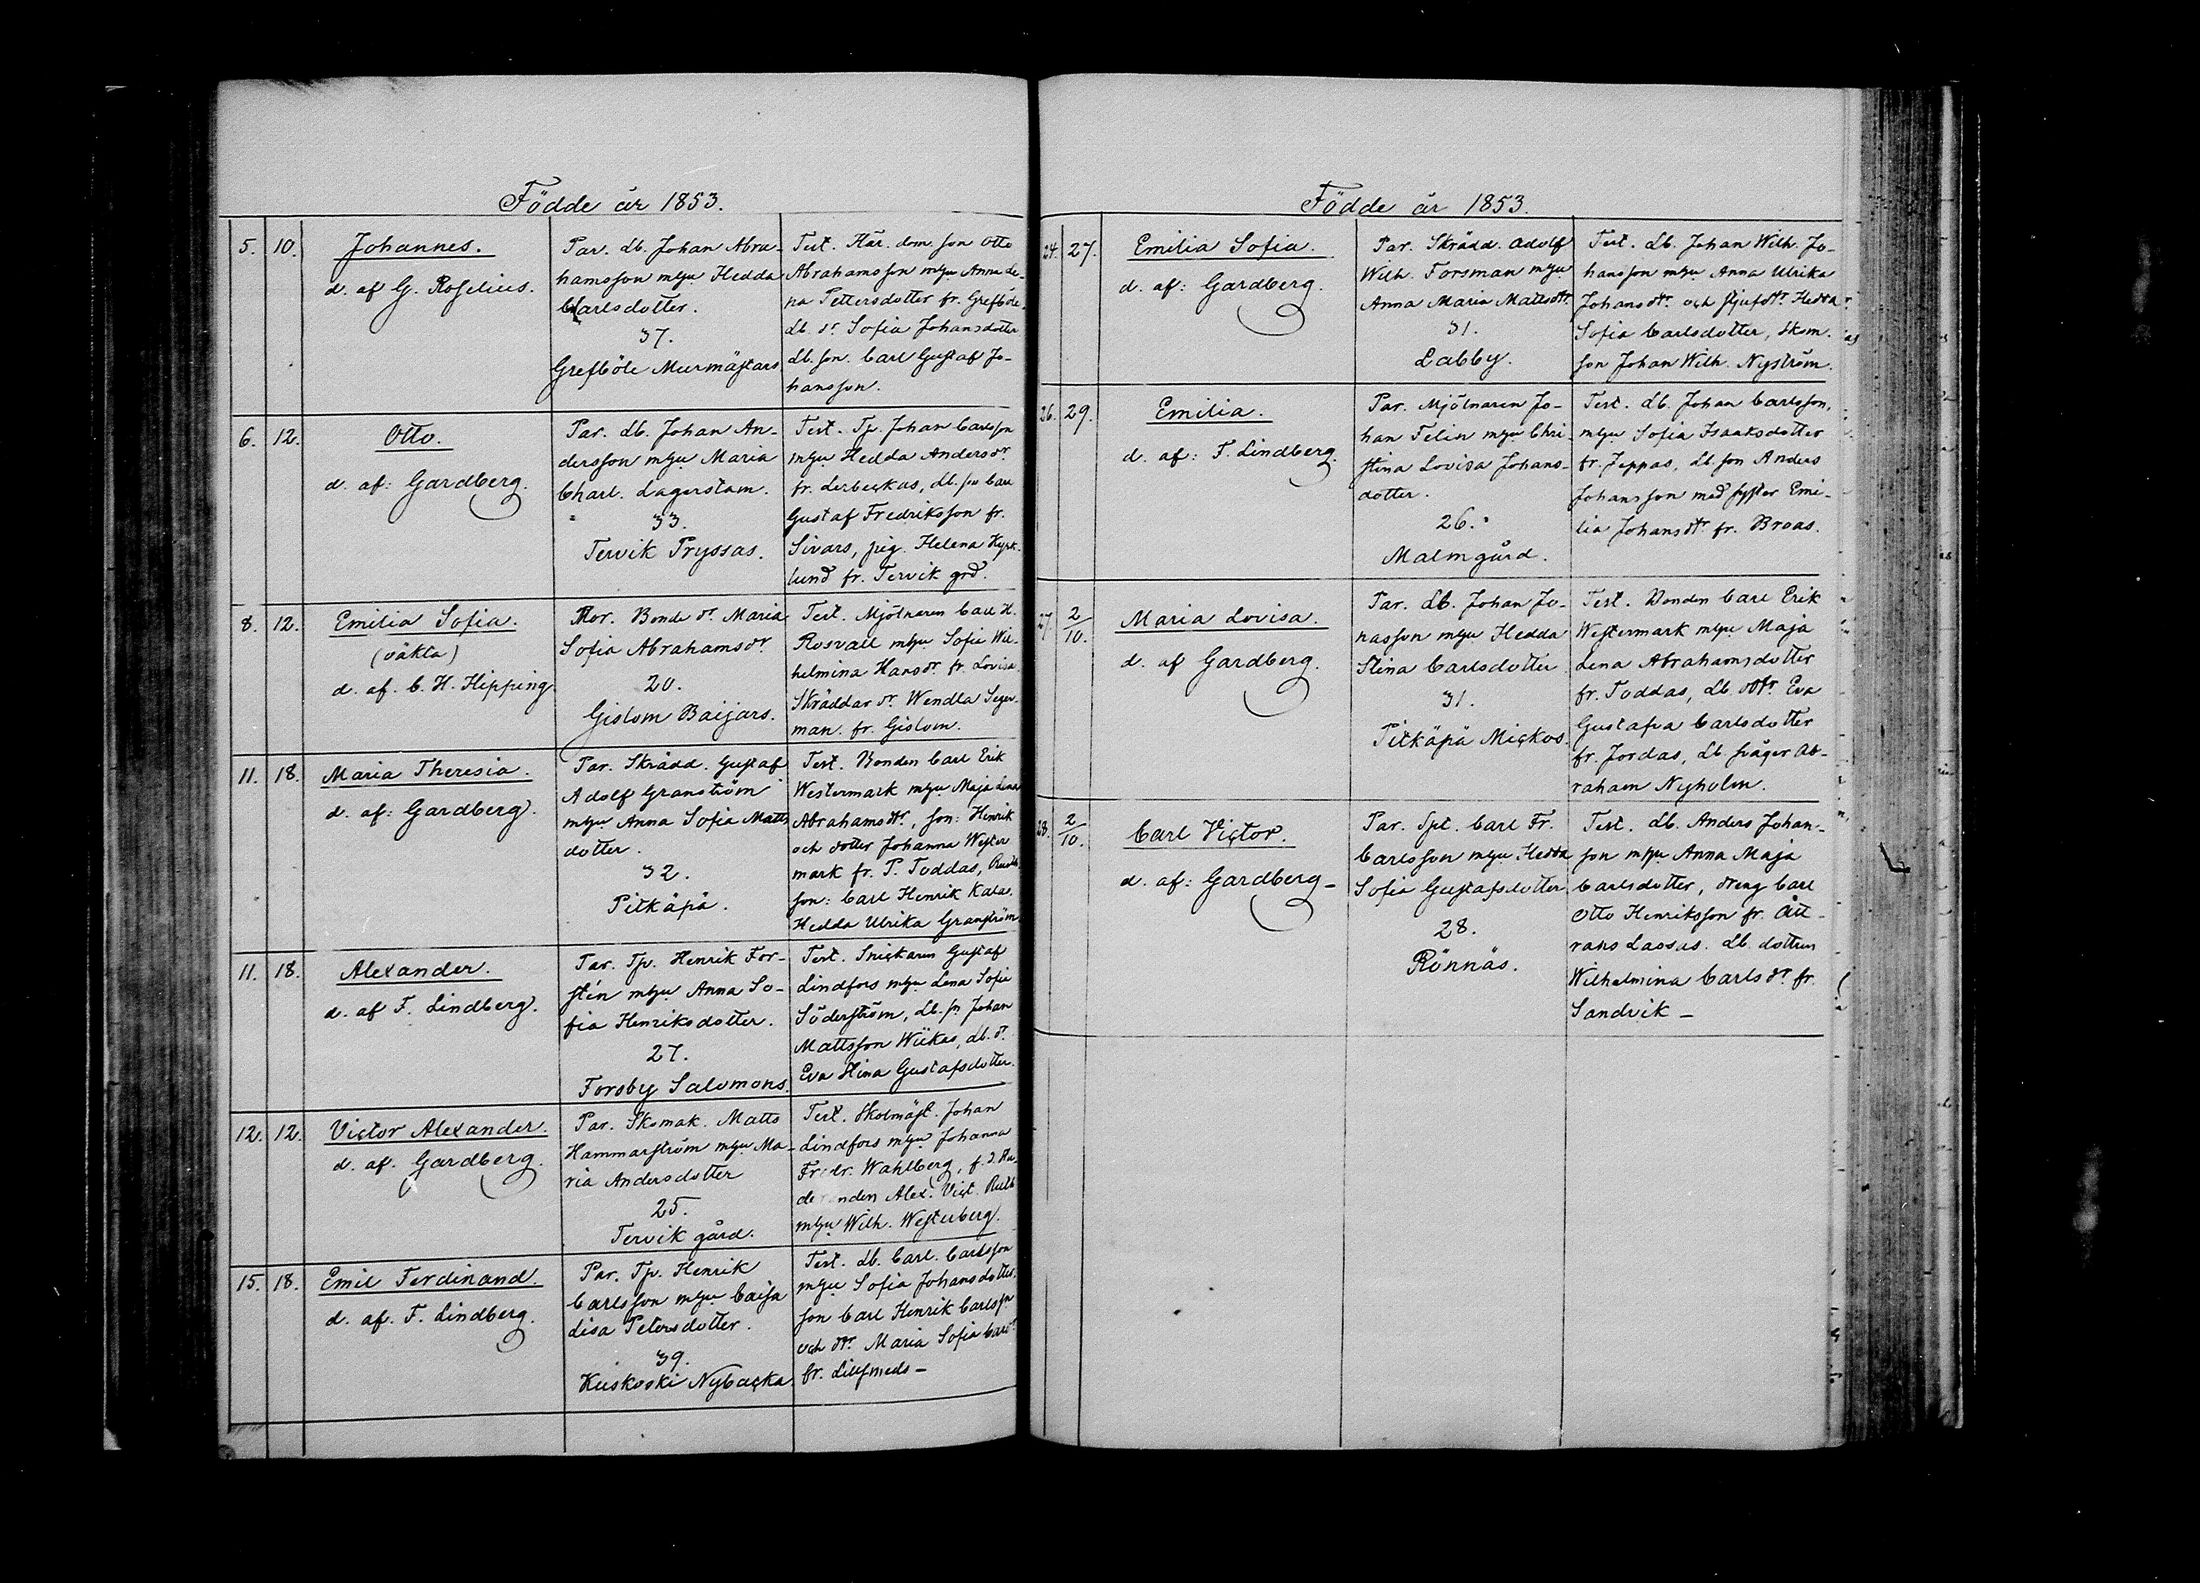 Födde år 1853.
5. 10. Johannes.
d. af G. Roselius.
Par. Lb. Johan Abra-
hamsson mhu Hedda
Carlsdotter.
37.
Grefböle Murmästars
Test. Här. dom. son Otto
Abrahamsson mhu Anna Le-
na Pettersdotter fr. Grefböle.
Lb. dr Sofia Johansdotter
Lb. son. Carl Gustaf Jo-
hansson.
6. 12. Otto.
d. af: Gardberg.
Par. Lb. Johan An-
dersson mhu Maria
Charl. Lagerstam.
33.
Tervik Pryssas.
Test. Tp. Johan Carlsson
mhu Hedda Andersdr
fr. Lerbeckas, Lb. son Carl
Gustaf Fredriksson fr.
Sivars, pig. Helena Kyrk-
lund fr. Tervik grd.
8. 12. Emilia Sofia.
(oäkta)
d. af. C. H. Hipping
Mor. Bonde dr Maria
Sofia Abrahamsdr
20.
Gislom Baijars.
Test. Mjölnaren Carl H.
Rosvall mhu Sofia Wil-
helmina Hansdr fr. Lovisa
Skräddar dr Wendla Seger-
man fr. Gislom.
11. 18. Maria Theresia.
d. af: Gardberg.
Par. Skrädd. Gustaf
Adolf Granström
mhu Anna Sofia Matts
dotter.
32.
Pitkäpä.
Test. Bonden Carl Erik
Westermark mhu Maja Lena
Abrahamsdr, son: Henrik
och dotter Johanna Wester
mark fr. P. Toddas,
son: Carl Henrik Kala.
Hedda Ulrika Granström
11. 18. Alexander.
d. af F. Lindberg.
Par. Tp. Henrik For-
stén mhu Anna So-
fia Henriksdotter.
27.
Forsby Salomons.
Test. Snickaren Gustaf
Lindfors mhu Lena Sofia
Söderström, Lb. sn Johan
Mattsson Wiikas, Lb. dr
Eva Stina Gustafsdotter.
12. 12. Victor Alexander.
d. af. Gardberg.
Par. Skomak. Matts
Hammarström mhu Ma-
ria Andersdotter
25.
Tervik gård.
Test. Skolmäst. Johan
Lindfors mhu Johanna
Fredr. Wahlberg, f. d.
Alex. Vict.
mhu Wilh. Westerberg.
15. 18. Emil Ferdinand.
d. af. F. Lindberg.
Par. Tp. Henrik
Carlsson mhu Caisa
Lisa Petersdotter.
39.
Kuskoski Nybacka.
Test. Lb. Carl. Carlsson
mhu Sofia Johansdotter,
son Carl Henrik Carlsson
och dtr Maria Sofia Carlsdr
fr. Lillsmeds -
Födde år 1853.
24. 27. Emilia Sofia.
d. af: Gardberg.
Par. Skrädd. Adolf
Wilh. Forsman mhu
Anna Maria Mattsdtr
31.
Labby.
Test. Lb. Johan Wilh. Jo-
hansson mhu Anna Ulrika
Johansdtr och stjufdtr Hedda
Sofia Carlsdotter, Skom.
son Johan Wilh. Nyström.
26. 29. Emilia.
d. af: F. Lindberg.
Par. Mjölnaren Jo-
han Felin mhu Chri-
stina Lovisa Johans-
dotter.
26.
Malmgård.
Test. Lb. Johan Carlsson,
mhu Sofia Isaaksdotter
fr. Jeppas, Lb son Anders
Johansson med syster Emi-
lia Johansdtr fr. Broas.
27. 2/10. Maria Lovisa.
d. af Gardberg.
Par. Lb. Johan Jo-
nasson mhu Hedda
Stina Carlsdotter
31.
Pitkäpä Mickos.
Test. Bonden Carl Erik
Westermark mhu Maja
Lena Abrahamsdotter
fr. Toddas, Lb. dottr Eva
Gustafva Carlsdotter
fr. Jordas, Lb svåger Ab-
raham Nyholm.
28. 2/10. Carl Victor.
d. af: Gardberg -
Par. Spt. Carl Fr.
Carlsson mhu Hedda
Sofia Gustafsdotter
28.
Rönnäs.
Test. Lb. Anders Johan-
son mhu Anna Maja
Carlsdotter, dreng Carl
Otto Henriksson fr.
Lassas. Lb. dottern
Wilhelmina Carlsdr fr.
Sandvik -